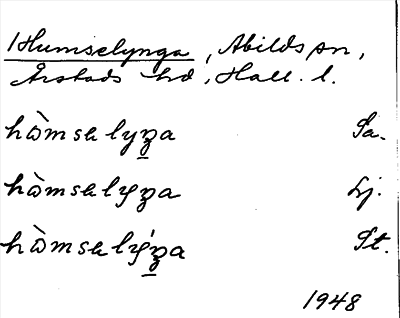 Humselynga, Abilds sn,
Årstads hd, Hall. l.
hòmsalyŋa Sa.
hòmsalyŋa Lj.
hòmsalýŋa St.
1948